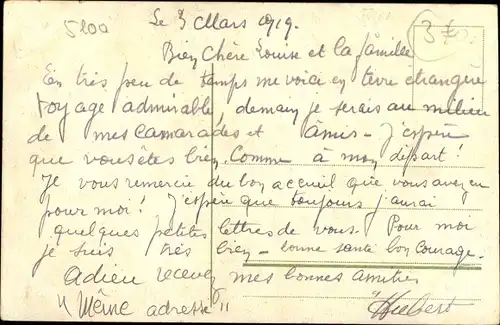 5200
3 €
Le 3 Mars 1919.
Bien Chère Louise et la famille
En très peu de temps me voici en terre étrangère
voyage admirable, demain je serais au milieu
de mes camarades et âmis - j'espère
que vous êtes bien. Comme à mon départ!
Je vous remercie du bon accueil que vous avez eu
pour moi! J'espère que toujours j'aurai
quelques petites lettres de vous. Pour moi
je suis très bien - bonne santé bon courage.
Adieu recevez mes bonnes amitiés
"Même adresse" Hubert